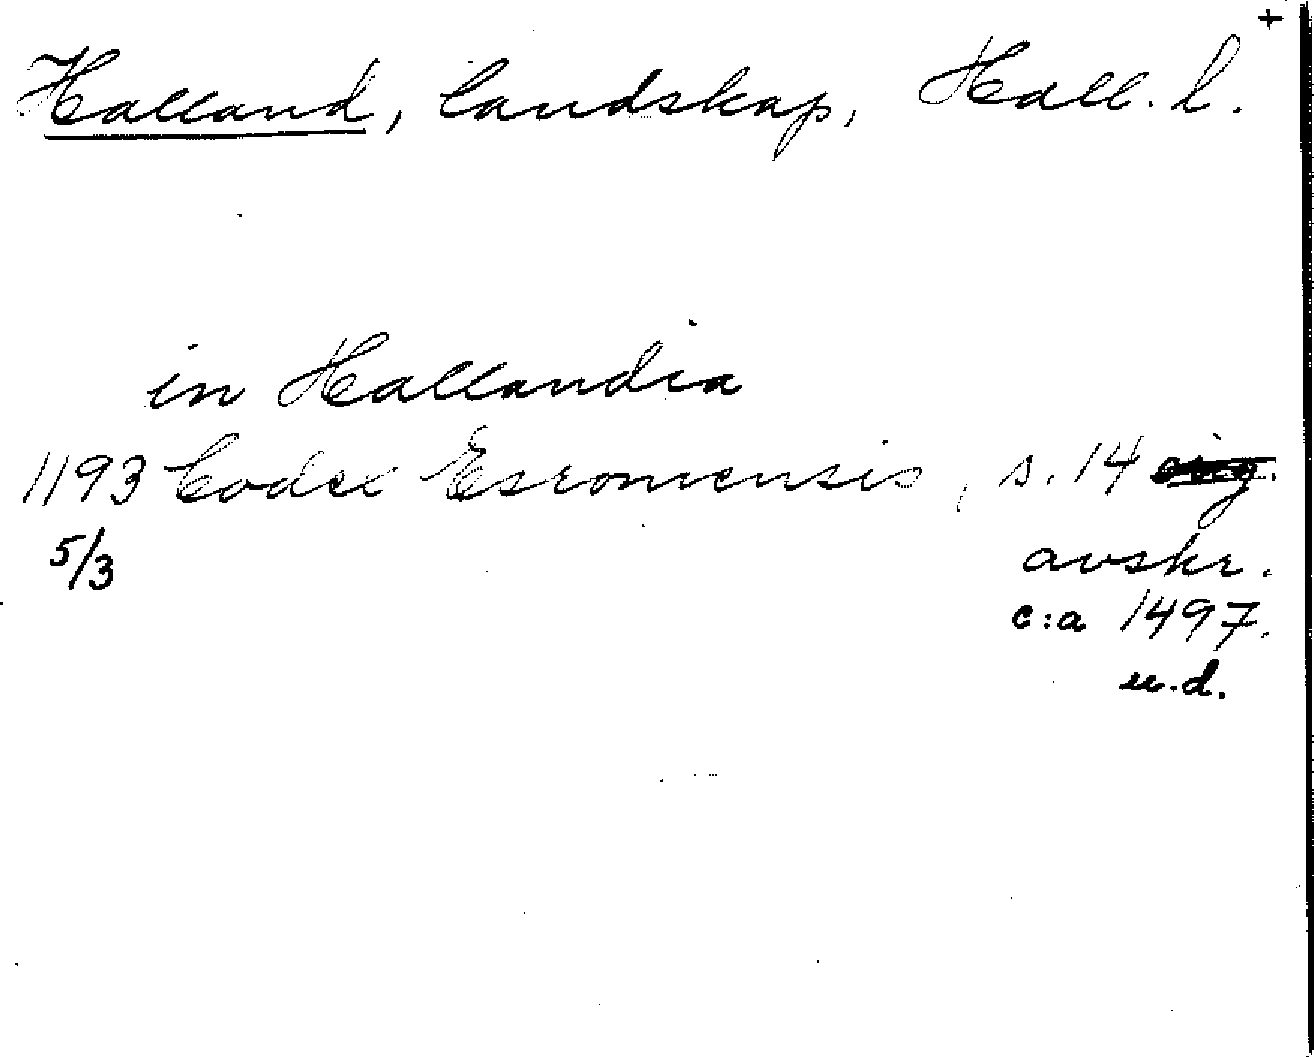 +
Halland, landskap, Hall. l.
in Hallandia
1193 Codex Esromensis, s. 14
5/3
avskr.
c:a 1497.
u.d.